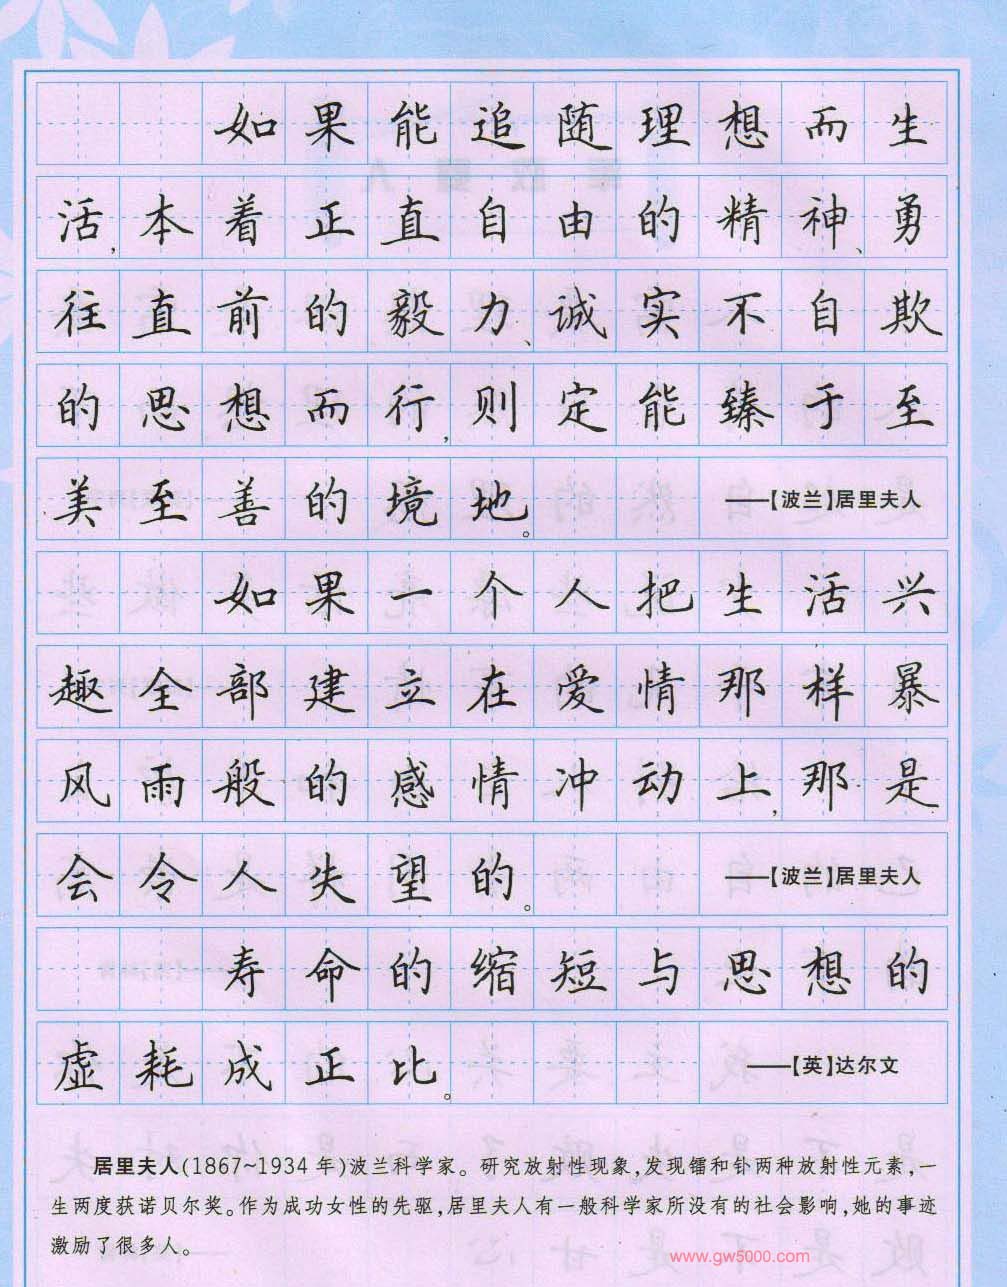 如果能追随理想而生
活，本着正直自由的精神、勇
往直前的毅力、诚实不自欺
的思想而行，则定能臻于至
美至善的境地。 ——【波兰】居里夫人
如果一个人把生活兴
趣全部建立在爱情那样暴
风雨般的感情冲动上，那是
会令人失望的。 ——【波兰】居里夫人
寿命的缩短与思想的
虚耗成正比。 ——【英】达尔文
居里夫人(1867~1934年)波兰科学家。研究放射性现象，发现镭和钋两种放射性元素，一
生两度获诺贝尔奖。作为成功女性的先驱，居里夫人有一般科学家所没有的社会影响，她的事迹
激励了很多人。
www.gw5000.com